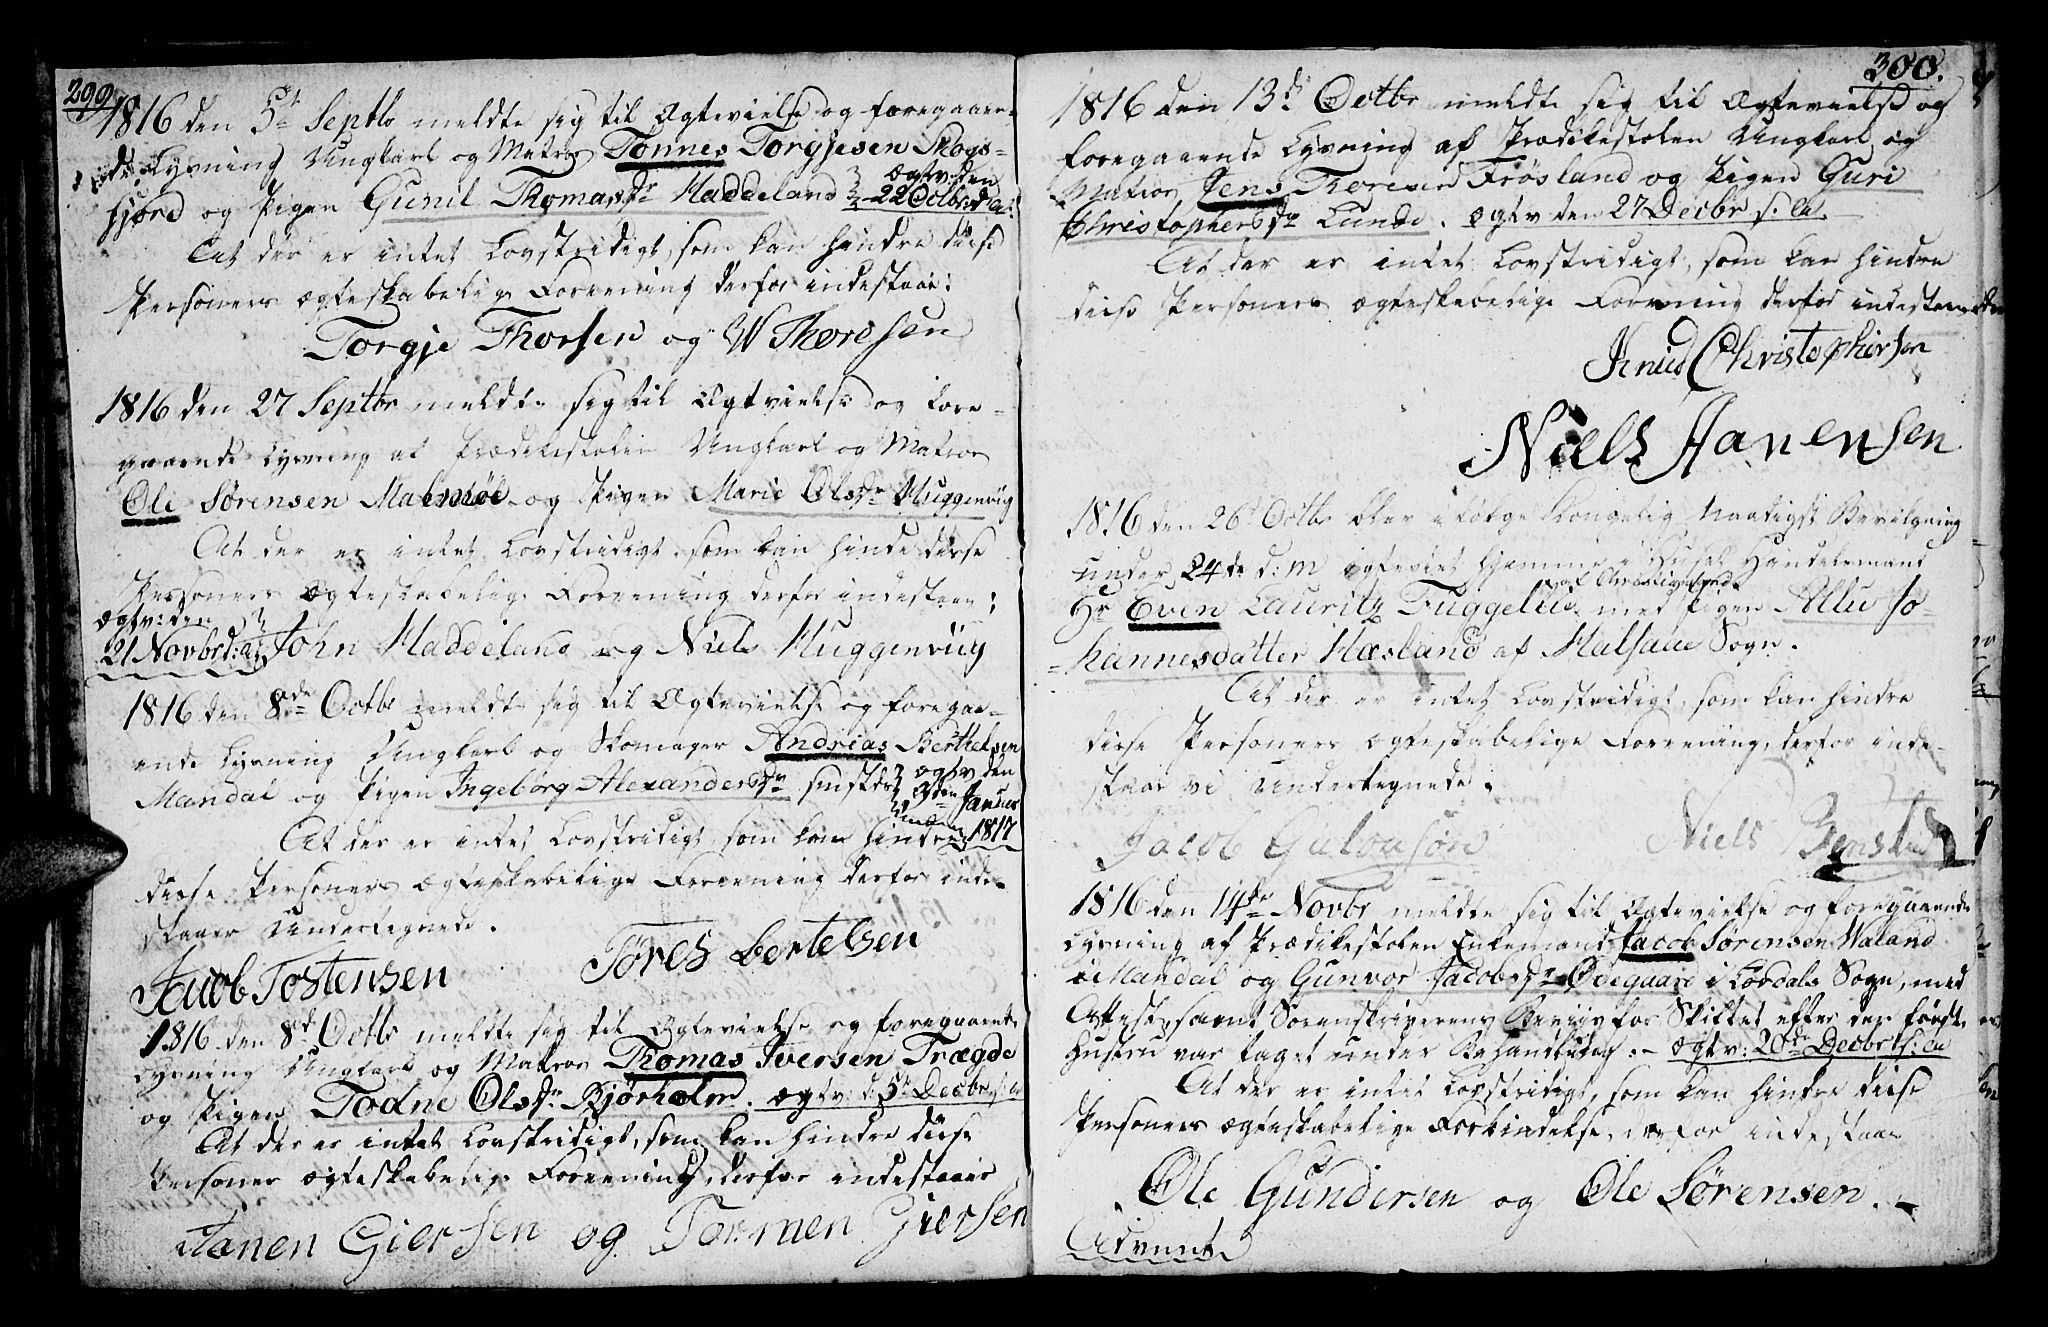 299
1816 den 5te Septbr meldte sig til Ægtevielse og foregaaen-
de Lysning Ungkarl og Matros Tönnes Torgjesen Skogs-
fjord og Pigen Gunil Thomasdr Haddeland Ægtv: den
22 Octbr d: A:
At der er intet Lovstridigt, som kan hindre disse
Personers ægteskabelige Forening derfor indestaae:
Torgje Thorsen og W Thoresen
1816 den 27 Septbr meldte sig til Ægtevielse og fore-
gaaende Lysning af Prædikestolen Ungkarl og Matros
Ole Sørensen Malmöe og Pigen Marie Olsdr Huggenvüg
At der er intet Lovstridigt som kan hindre disse
Personers Ægteskabelige Forening derfor indestaae:
Ægtv: den
21 Novbr d: A: John Haddeland og Niels Huggenvüg
1816 den 8de Octbr meldte sig til Ægtevielse og foregaa-
ende Lysning Ungkarl og Skomager Andreas Berthelsen
Mandal og Pigen Ingebörg Alexandersdr ægtv den
9den Januar
1817
At der er intet Lovstridigt som kan hindre
disse Personers Ægteskabelige Forening derfor inde-
staaer Undertegnede.
Jacob Tostensen Töres bertelsen
1816 den 8de Octbr meldte sig til Ægtevielse og foregaaende
Lysning Ungkarl og Matros Thomas Iversen Trægde
og Pigen Todne Olsdr Bjørholm. ægtv: d: 5te Decbr s: A
At der er intet Lovstridigt, som kan hindre disse
Personer ægteskabelige Forening, derfor indestaaer
Tanen Giersen og Tormen Giersen
300.
1816 den 13de Octbr meldte sig til Ægtevielse og
foregaaende Lysning af Prædikestolen Ungkarl og
Matros Jens Thoresen Frösland og Pigen Guri
Christophersdr Lunde. Ægtv den 27 Decbr s. A.
At der er intet Lovstridigt, som kan hindre
disse Personers ægteskabelige Forening derfor indestaae
Knud Christophersen
Niels Hanensen
1816 den 26de Octbr blev i følge Kongelig Naadigst Bevilgning
under 24de d: M ægteviet hjemme i Huset Handelsmand
Hr Even Lauritz Fuggellie af Christiansand med Pigen Allu Jo-
hannesdatter Hæsland af Halsaae Sogn.
At der er intet Lovstridigt, som kan hindre
disse Personers ægteskabelige Forening, derfor inde-
staae vi Undertegnede.
Jacob Gulouson Niels Benstud
1816 den 14de Novbr meldte sig til Ægtevielse og foregaaende
Lysning af Prædikestolen Enkemand Jacob Sørensen Waland
i Mandal og Gunvor Jacobsdr Ødegaard i Lovdals Sogn, med
Attest, samt Sorenskriverens Beviis for Skiftet efter den første
Hustru var taget under Behandling. – Ægtv: 20de Decbr s: A
At der er intet Lovstridigt, som kan hindre disse
Personers ægteskabelige Forbindelse, derfor indestaae
Ole Gundersen og Ole Sørensen. –
Advent